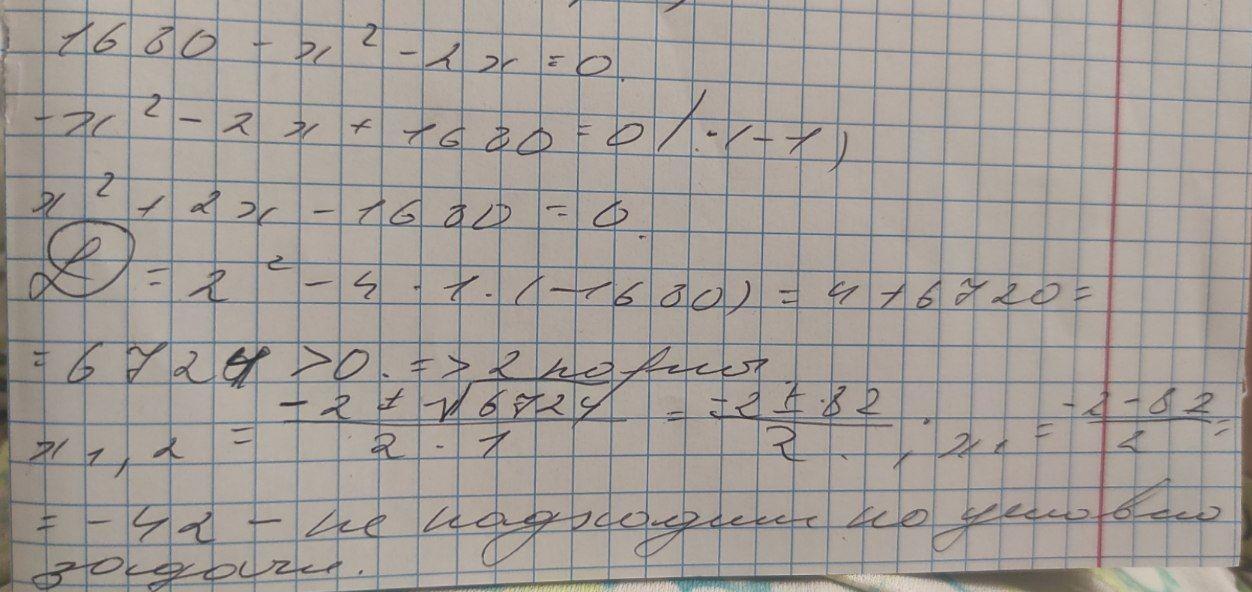 1680 - x² - 2x = 0.
-x² - 2x + 1680 = 0 / · (-1)
x² + 2x - 1680 = 0.
D = 2² - 4 · 1 · (-1680) = 4 + 6720 =
= 6724 > 0. => 2 корня
x₁,₂ = (-2 ± √6724) / (2 · 1) = (-2 ± 82) / 2 ; x₁ = (-2 - 82) / 2 =
= -42 - не подходит по условию
задачи.